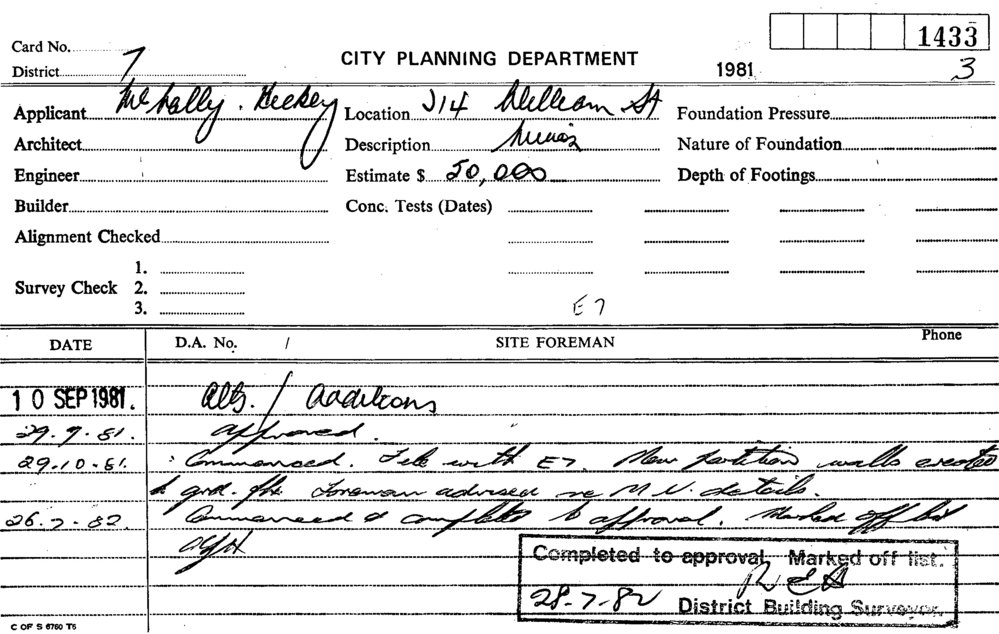 1433
Card No.
CITY PLANNING DEPARTMENT
District 7
1981
3
Applicant McNally. Hickey
Location 214 William St
Foundation Pressure
Architect
Description
Nature of Foundation
Engineer
Estimate $ 50,000
Depth of Footings
Builder
Conc. Tests (Dates)
Alignment Checked
1.
Survey Check 2.
3.
E7
DATE
D.A. No. /
SITE FOREMAN
Phone
10 SEP 1981.
Alts. / Additions
29.9.81. approved.
29.10.81. Commenced. File with E7. New partition walls erected
to grd. flr. Foreman advised re M.V. details.
26.7.82. Commenced & completed to approval. Marked off list
Completed to approval. Marked off list.
28-7-82 District Building Surveyor.
C OF S 6760 T5